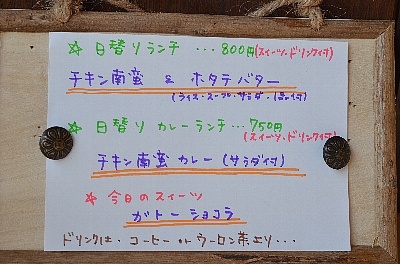 ☆ 日替りランチ ・・・800円(スイーツ・ドリンク付)
チキン南蛮 & ホタテバター
(ライス・スープ・サラダ・1品付)
☆ 日替り カレーランチ・・・750円
(スイーツ・ドリンク付)
チキン南蛮 カレー (サラダ付)
☆ 今日のスイーツ
ガトーショコラ
ドリンクは・コーヒー or ウーロン茶より・・・